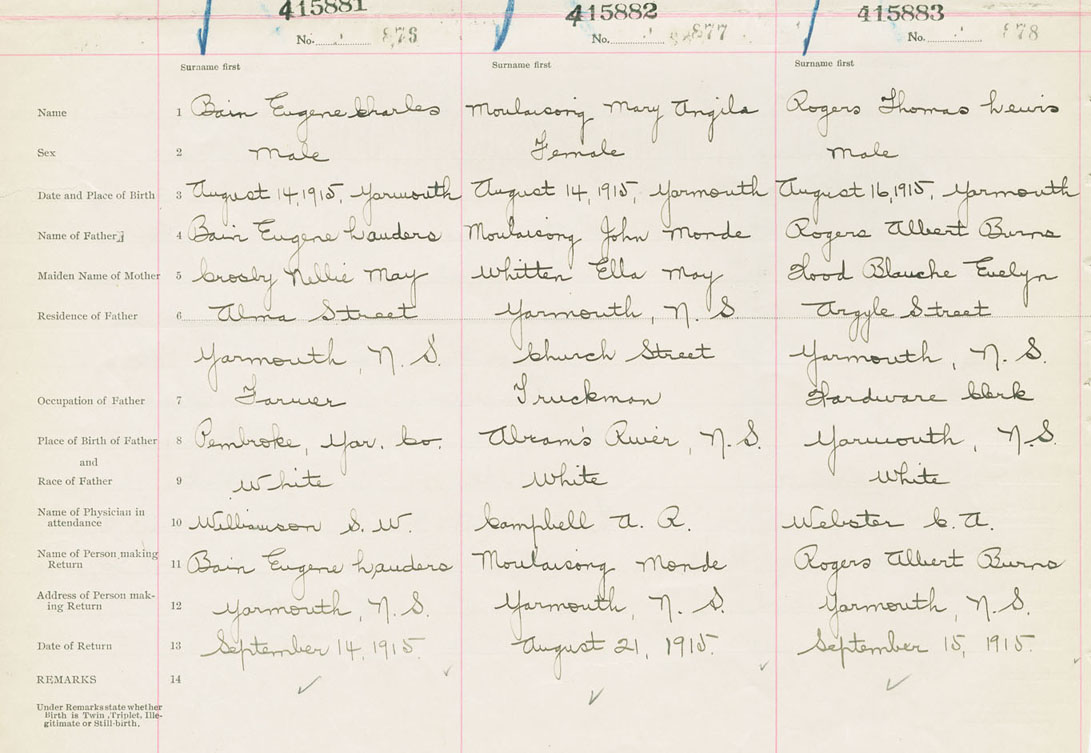 415881 415882 415883
No. 876 No. 877 No. 878
Surname first Surname first Surname first
Name 1 Bain Eugene Charles Moulaisong Mary Angila Rogers Thomas Lewis
Sex 2 Male Female Male
Date and Place of Birth 3 August 14, 1915, Yarmouth August 14, 1915, Yarmouth August 16, 1915, Yarmouth
Name of Father 4 Bain Eugene Landers Moulaisong John Monde Rogers Albert Burns
Maiden Name of Mother 5 Crosby Nellie May Whitten Ella May Hood Blanche Evelyn
Residence of Father 6 Alma Street Yarmouth, N. S. Argyle Street
Yarmouth, N. S. Church Street Yarmouth, N. S.
Occupation of Father 7 Farmer Truckman Hardware Clerk
Place of Birth of Father 8 Pembroke, Yar. Co. Abram's River, N. S. Yarmouth, N. S.
and
Race of Father 9 White White White
Name of Physician in
attendance 10 Williamson S. W. Campbell A. R. Webster C. A.
Name of Person making
Return 11 Bain Eugene Landers Moulaisong Monde Rogers Albert Burns
Address of Person mak-
ing Return 12 Yarmouth, N. S. Yarmouth, N. S. Yarmouth, N. S.
Date of Return 13 September 14, 1915. August 21, 1915. September 15, 1915.
REMARKS 14
Under Remarks state whether
Birth is Twin, Triplet, Ille-
gitimate or Still-birth.